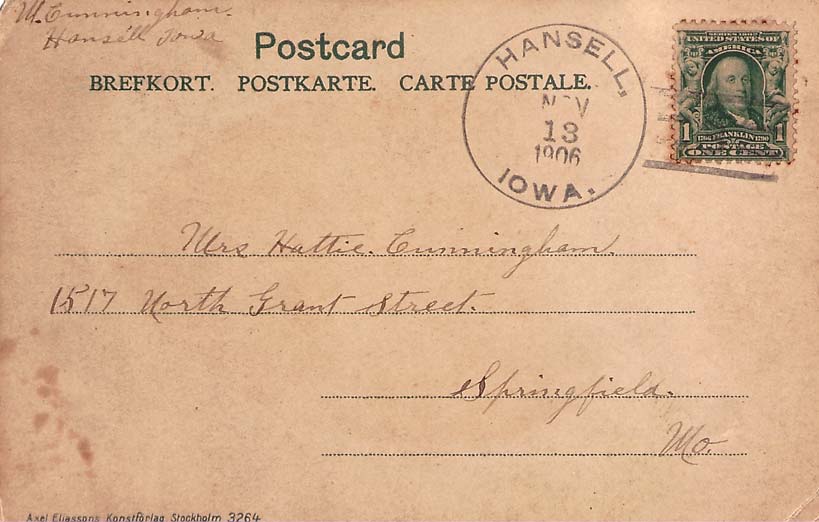 M. Cunningham.
Hansell Iowa
Postcard
BREFKORT. POSTKARTE. CARTE POSTALE.
HANSELL,
NOV
13
1906
IOWA.
SERIES 1902
UNITED STATES OF
AMERICA
1 1706 FRANKLIN 1790 1
POSTAGE
ONE CENT
Mrs Hattie. Cunningham.
1517 North Grant Street.
Springfield.
Mo.
Axel Eliassons Konstförlag Stockholm 3264